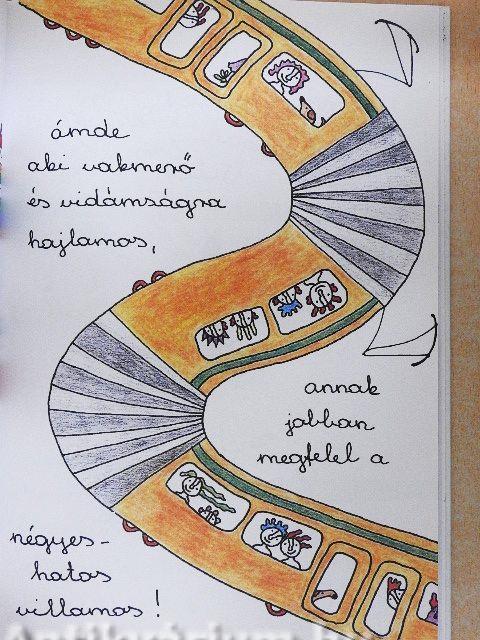 ámde
aki vakmerő
és vidámságra
hajlamos,
annak
jobban
megfelel a
négyes-
hatos
villamos!